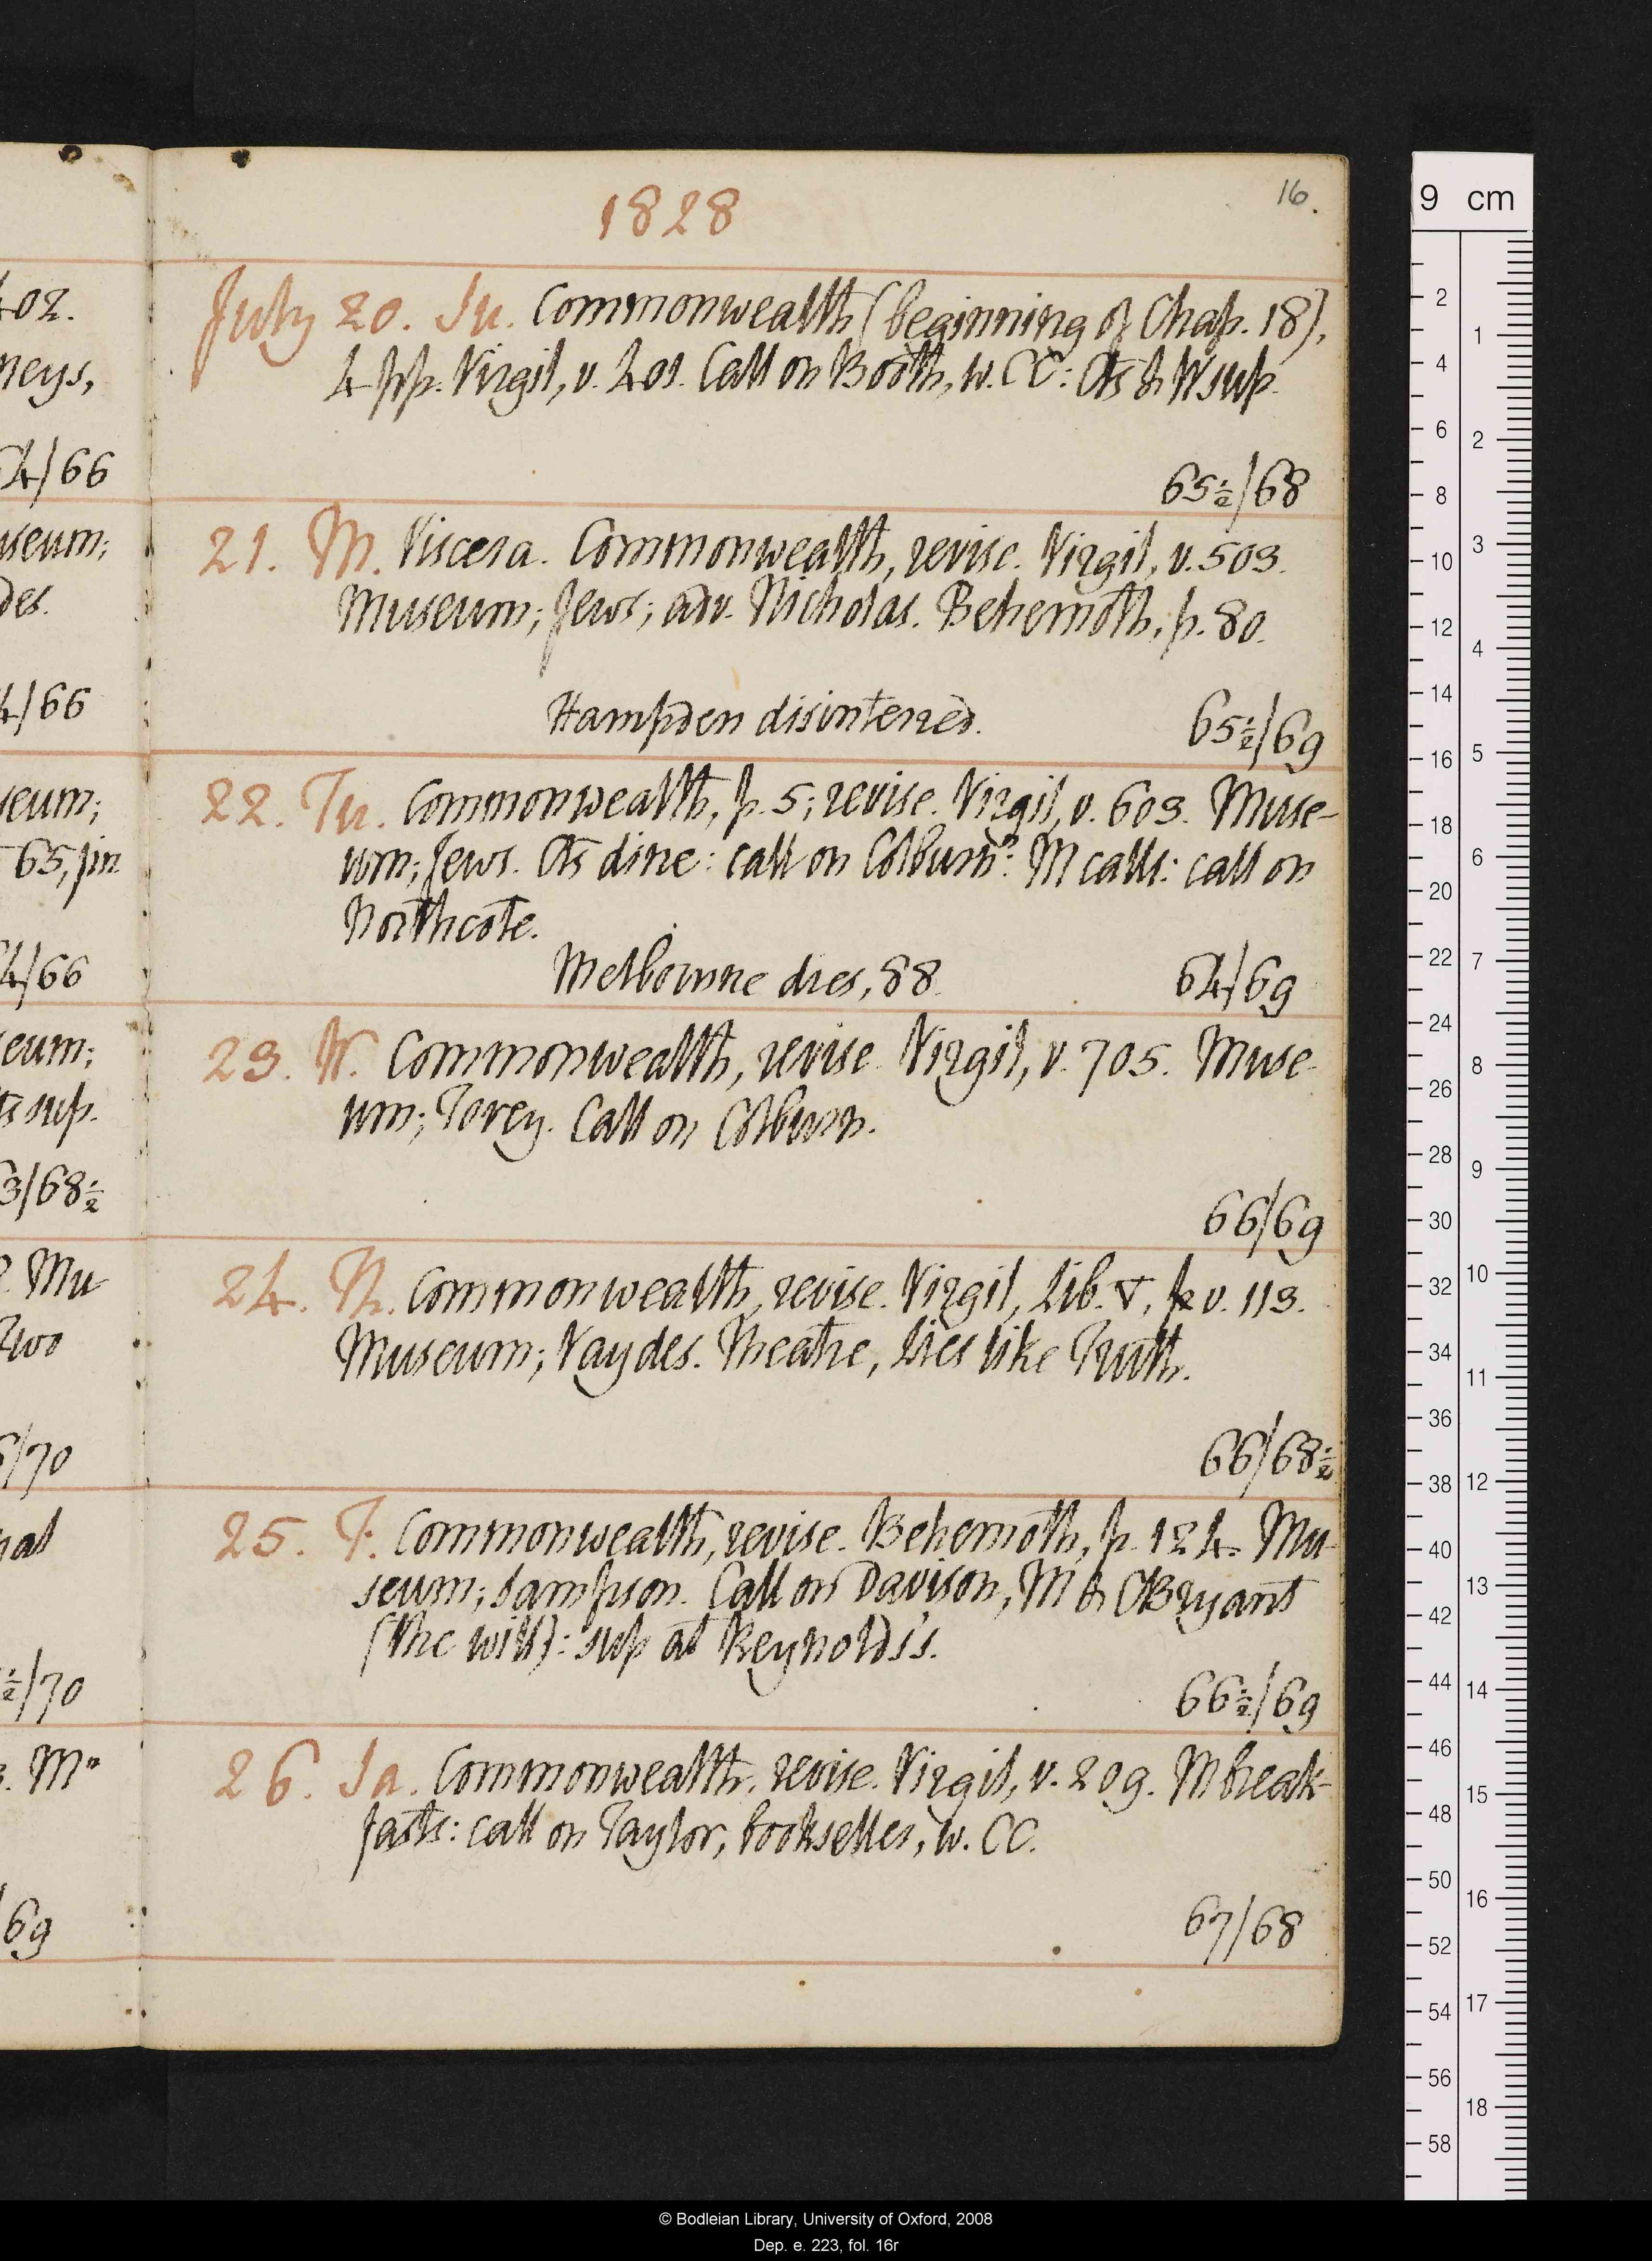 402.
neys,
64/66
useum;
des.
4/66
seum;
65, fin
64/66
seum;
s sup.
3/68½
Mu-
Two
6/70
nal
½/70
Mrs
/69
1828
16.
July 20. Su. Commonwealth (beginning of Chap. 18),
4 pp. Virgil, v. 401. Call on Booth, w. CC: Cts & W sup.
65½/68
21. M. Viscera. Commonwealth, revise. Virgil, v. 503.
Museum; Jews; adv. Nicholas. Behemoth, p. 80.
Hampden disinterred.
65½/69
22. Tu. Commonwealth, p. 5; revise. Virgil, v. 603. Muse-
um; Jews. Cts dine: call on Colburn: M calls: call on
Northcote.
Melbourne dies, 88.
64/69
23. W. Commonwealth, revise. Virgil, v. 705. Muse-
um; Tovey. Call on Colburn.
66/69
24. Th. Commonwealth, revise. Virgil, Lib. V, v. 113.
Museum; Vaydes. Theatre, Lies like Truth.
66/68½
25. F. Commonwealth, revise. Behemoth, p. 124. Mu-
seum; Sampson. Call on Davison, M & OBryant
(the will): sup at Reynolds's.
66½/69
26. Sa. Commonwealth, revise. Virgil, v. 209. M break-
fasts: call on Taylor, bookseller, w. CC.
67/68
9 cm
2
4
6
8
10
12
14
16
18
20
22
24
26
28
30
32
34
36
38
40
42
44
46
48
50
52
54
56
58
1
2
3
4
5
6
7
8
9
10
11
12
13
14
15
16
17
18
© Bodleian Library, University of Oxford, 2008
Dep. e. 223, fol. 16r